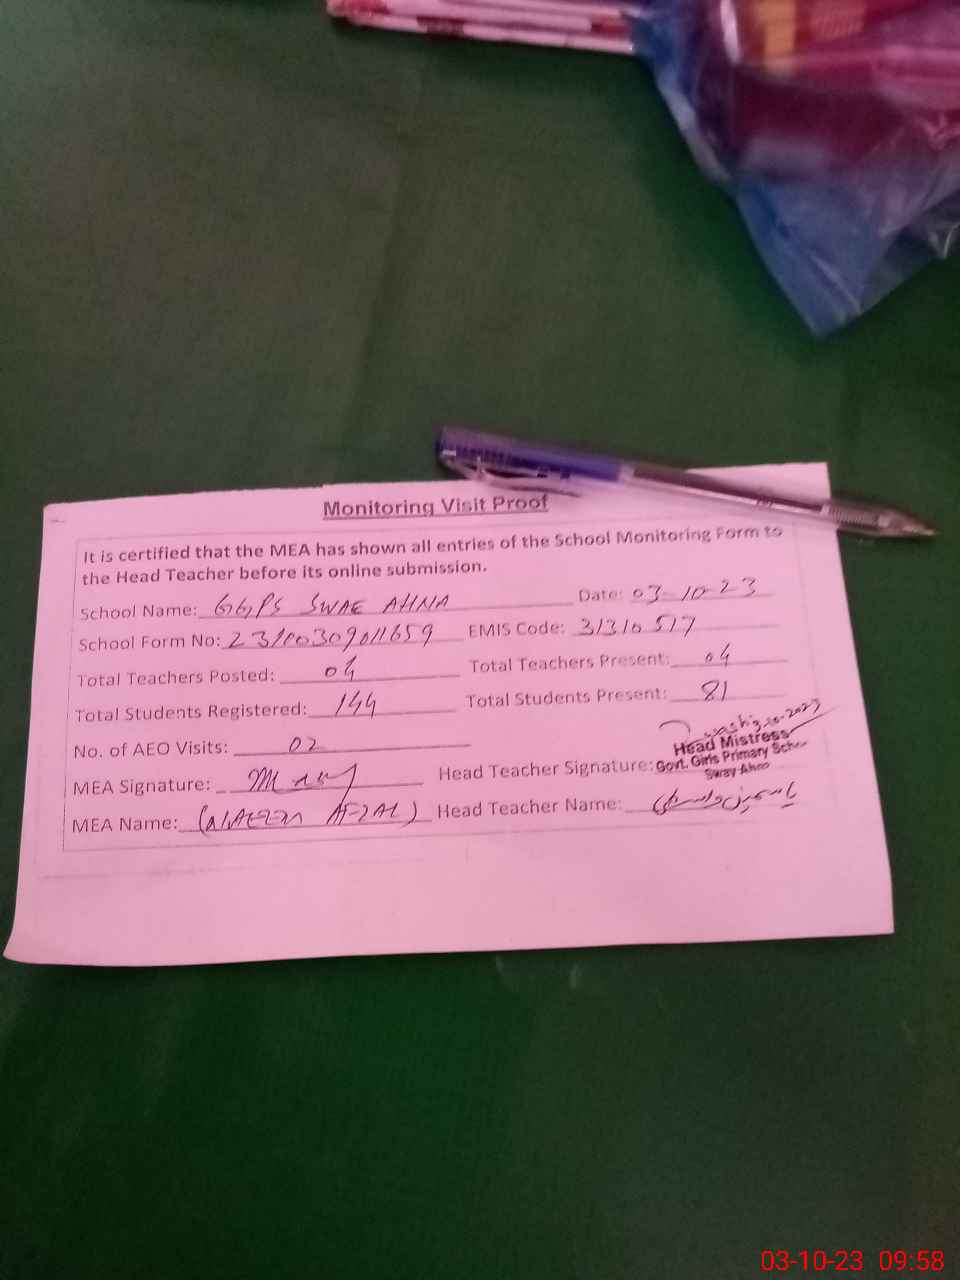 Monitoring Visit Proof
It is certified that the MEA has shown all entries of the School Monitoring Form to
the Head Teacher before its online submission.
School Name: GGPS SWAE AHNA Date: 03-10-23
School Form No: 23100309011659 EMIS Code: 31310517
Total Teachers Posted: 04 Total Teachers Present: 04
Total Students Registered: 144 Total Students Present: 81
No. of AEO Visits: 02
3-10-2023
Head Mistress
MEA Signature: Head Teacher Signature: Govt. Girls Primary School
Sway Ahna
MEA Name: (NAEEM AFZAL) Head Teacher Name: یاسمین
03-10-23 09:58